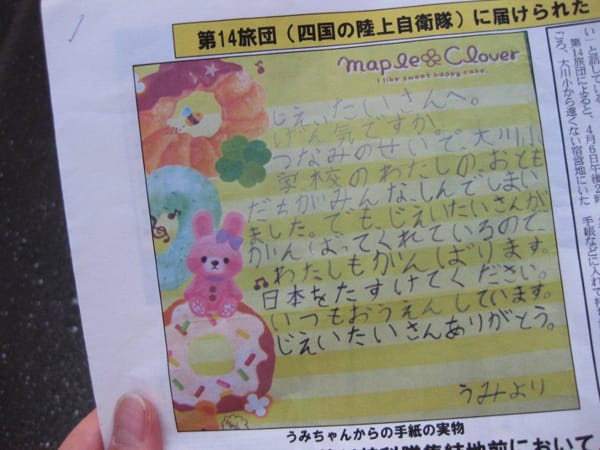 第14旅団(四国の陸上自衛隊)に届けられた
maple Clover
I like sweet happy cake.
じえいたいさんへ。
げん気ですか。
つなみのせいで、大川小
学校のわたしの、おとも
だちがみんな、しんでしまい
ました。でも、じえいたいさんが
がんばってくれているので、
わたしもがんばります。
日本をたすけてください。
いつもおうえんしています。
じえいたいさんありがとう。
うみより
うみちゃんからの手紙の実物
い」と話している
第14旅団によると、4月6日午後2時
ころ、大川小から遠くない宿営地にいた
手帳などに入れて持